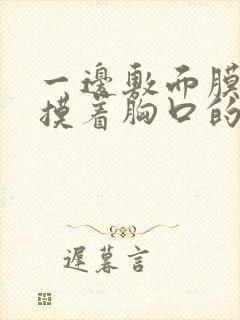 一邊敷面膜
摸着胸口的
遲暮言